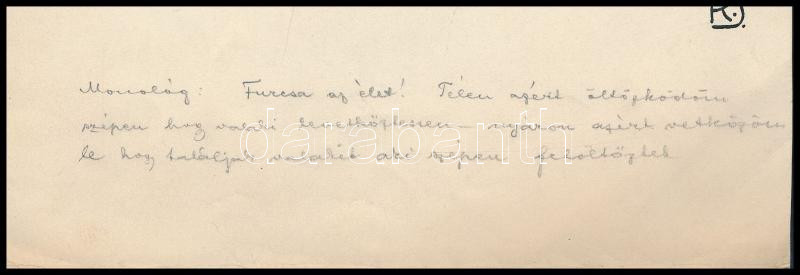 R.
Monológ: Furcsa az élet! Télen azért öltözködöm
szépen hogy valaki levetkőztessen – nyáron azért vetkőzöm
le hogy találjak valakit aki szépen felöltöztet
darabanth